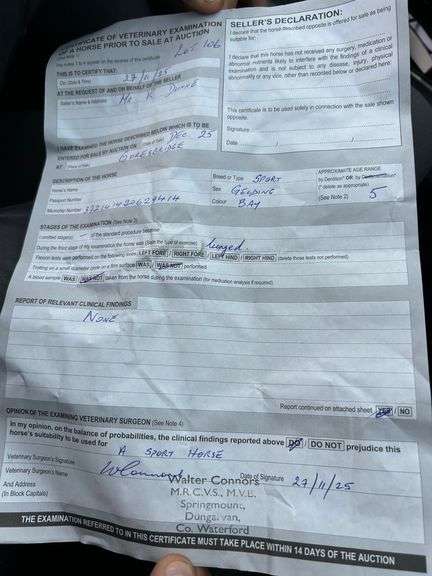 CERTIFICATE OF VETERINARY EXAMINATION
OF A HORSE PRIOR TO SALE AT AUCTION
Lot 106
THIS IS TO CERTIFY THAT:
On (Date & Time) 27/11/25
AT THE REQUEST OF AND ON BEHALF OF THE SELLER
Seller's Name & Address Mr K. Dunne
I HAVE EXAMINED THE HORSE DESCRIBED BELOW WHICH IS TO BE
ENTERED FOR SALE BY AUCTION ON Dec 25
AT GORESBRIDGE
SELLER'S DECLARATION:
I declare that the horse described opposite is offered for sale as being
suitable for:
I declare that this horse has not received any surgery, medication or
abnormal nutrients likely to interfere with the findings of a clinical
examination and is not subject to any disease, injury, physical
abnormality or any vice, other than recorded below or declared here.
This certificate is to be used solely in connection with the sale shown
opposite.
Signature
Date / /
DESCRIPTION OF THE HORSE
Horse's Name
Passport Number
Microchip Number
Breed or Type SPORT
Sex GELDING
Colour BAY
APPROXIMATE AGE RANGE
by Dentition* OR by
(* delete as appropriate)
(See Note 2) 5
STAGES OF THE EXAMINATION (See Note 3)
I omitted stage(s) - of the standard procedure because
During the third stage of my examination the horse was (State the type of exercise) lunged
Flexion tests were performed on the following limbs: LEFT FORE / RIGHT FORE / LEFT HIND / RIGHT HIND (delete those tests not performed)
Trotting on a small diameter circle on a firm surface WAS / WAS NOT performed
A blood sample WAS / WAS NOT taken from the horse during the examination (for medication analysis if required)
REPORT OF RELEVANT CLINICAL FINDINGS
NONE
Report continued on attached sheet YES / NO
OPINION OF THE EXAMINING VETERINARY SURGEON (See Note 4)
In my opinion, on the balance of probabilities, the clinical findings reported above DO / DO NOT prejudice this
horse's suitability to be used for A SPORT HORSE
Veterinary Surgeon's Signature
Date of Signature 27/11/25
Veterinary Surgeon's Name
And Address
(In Block Capitals)
Walter Connors
M.R.C.V.S., M.V.B.
Springmount,
Dungarvan,
Co. Waterford
THE EXAMINATION REFERRED TO IN THIS CERTIFICATE MUST TAKE PLACE WITHIN 14 DAYS OF THE AUCTION